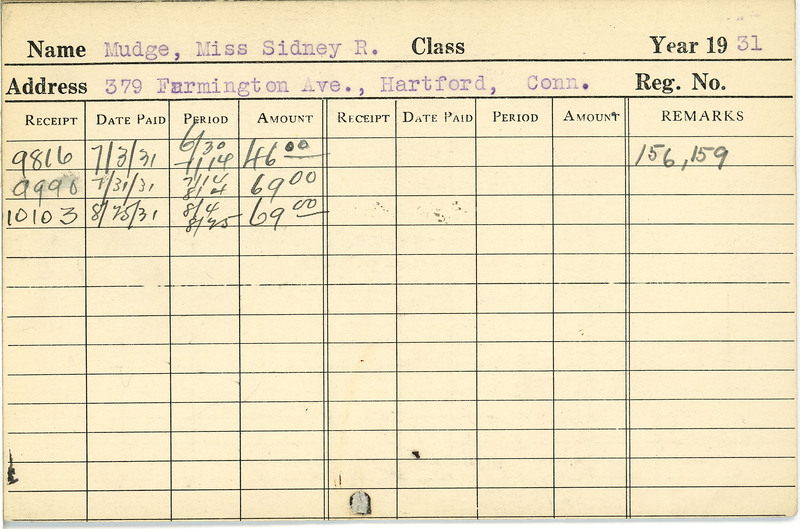 Name Mudge, Miss Sidney R. Class Year 19 31
Address 379 Farmington Ave., Hartford, Conn. Reg. No.
RECEIPT DATE PAID PERIOD AMOUNT RECEIPT DATE PAID PERIOD AMOUNT REMARKS
9816 7/3/31 6/30 7/14 46 00 156, 159
7/31/31 7/14 8/4 69 00
10103 8/25/31 8/4 8/25 69 00